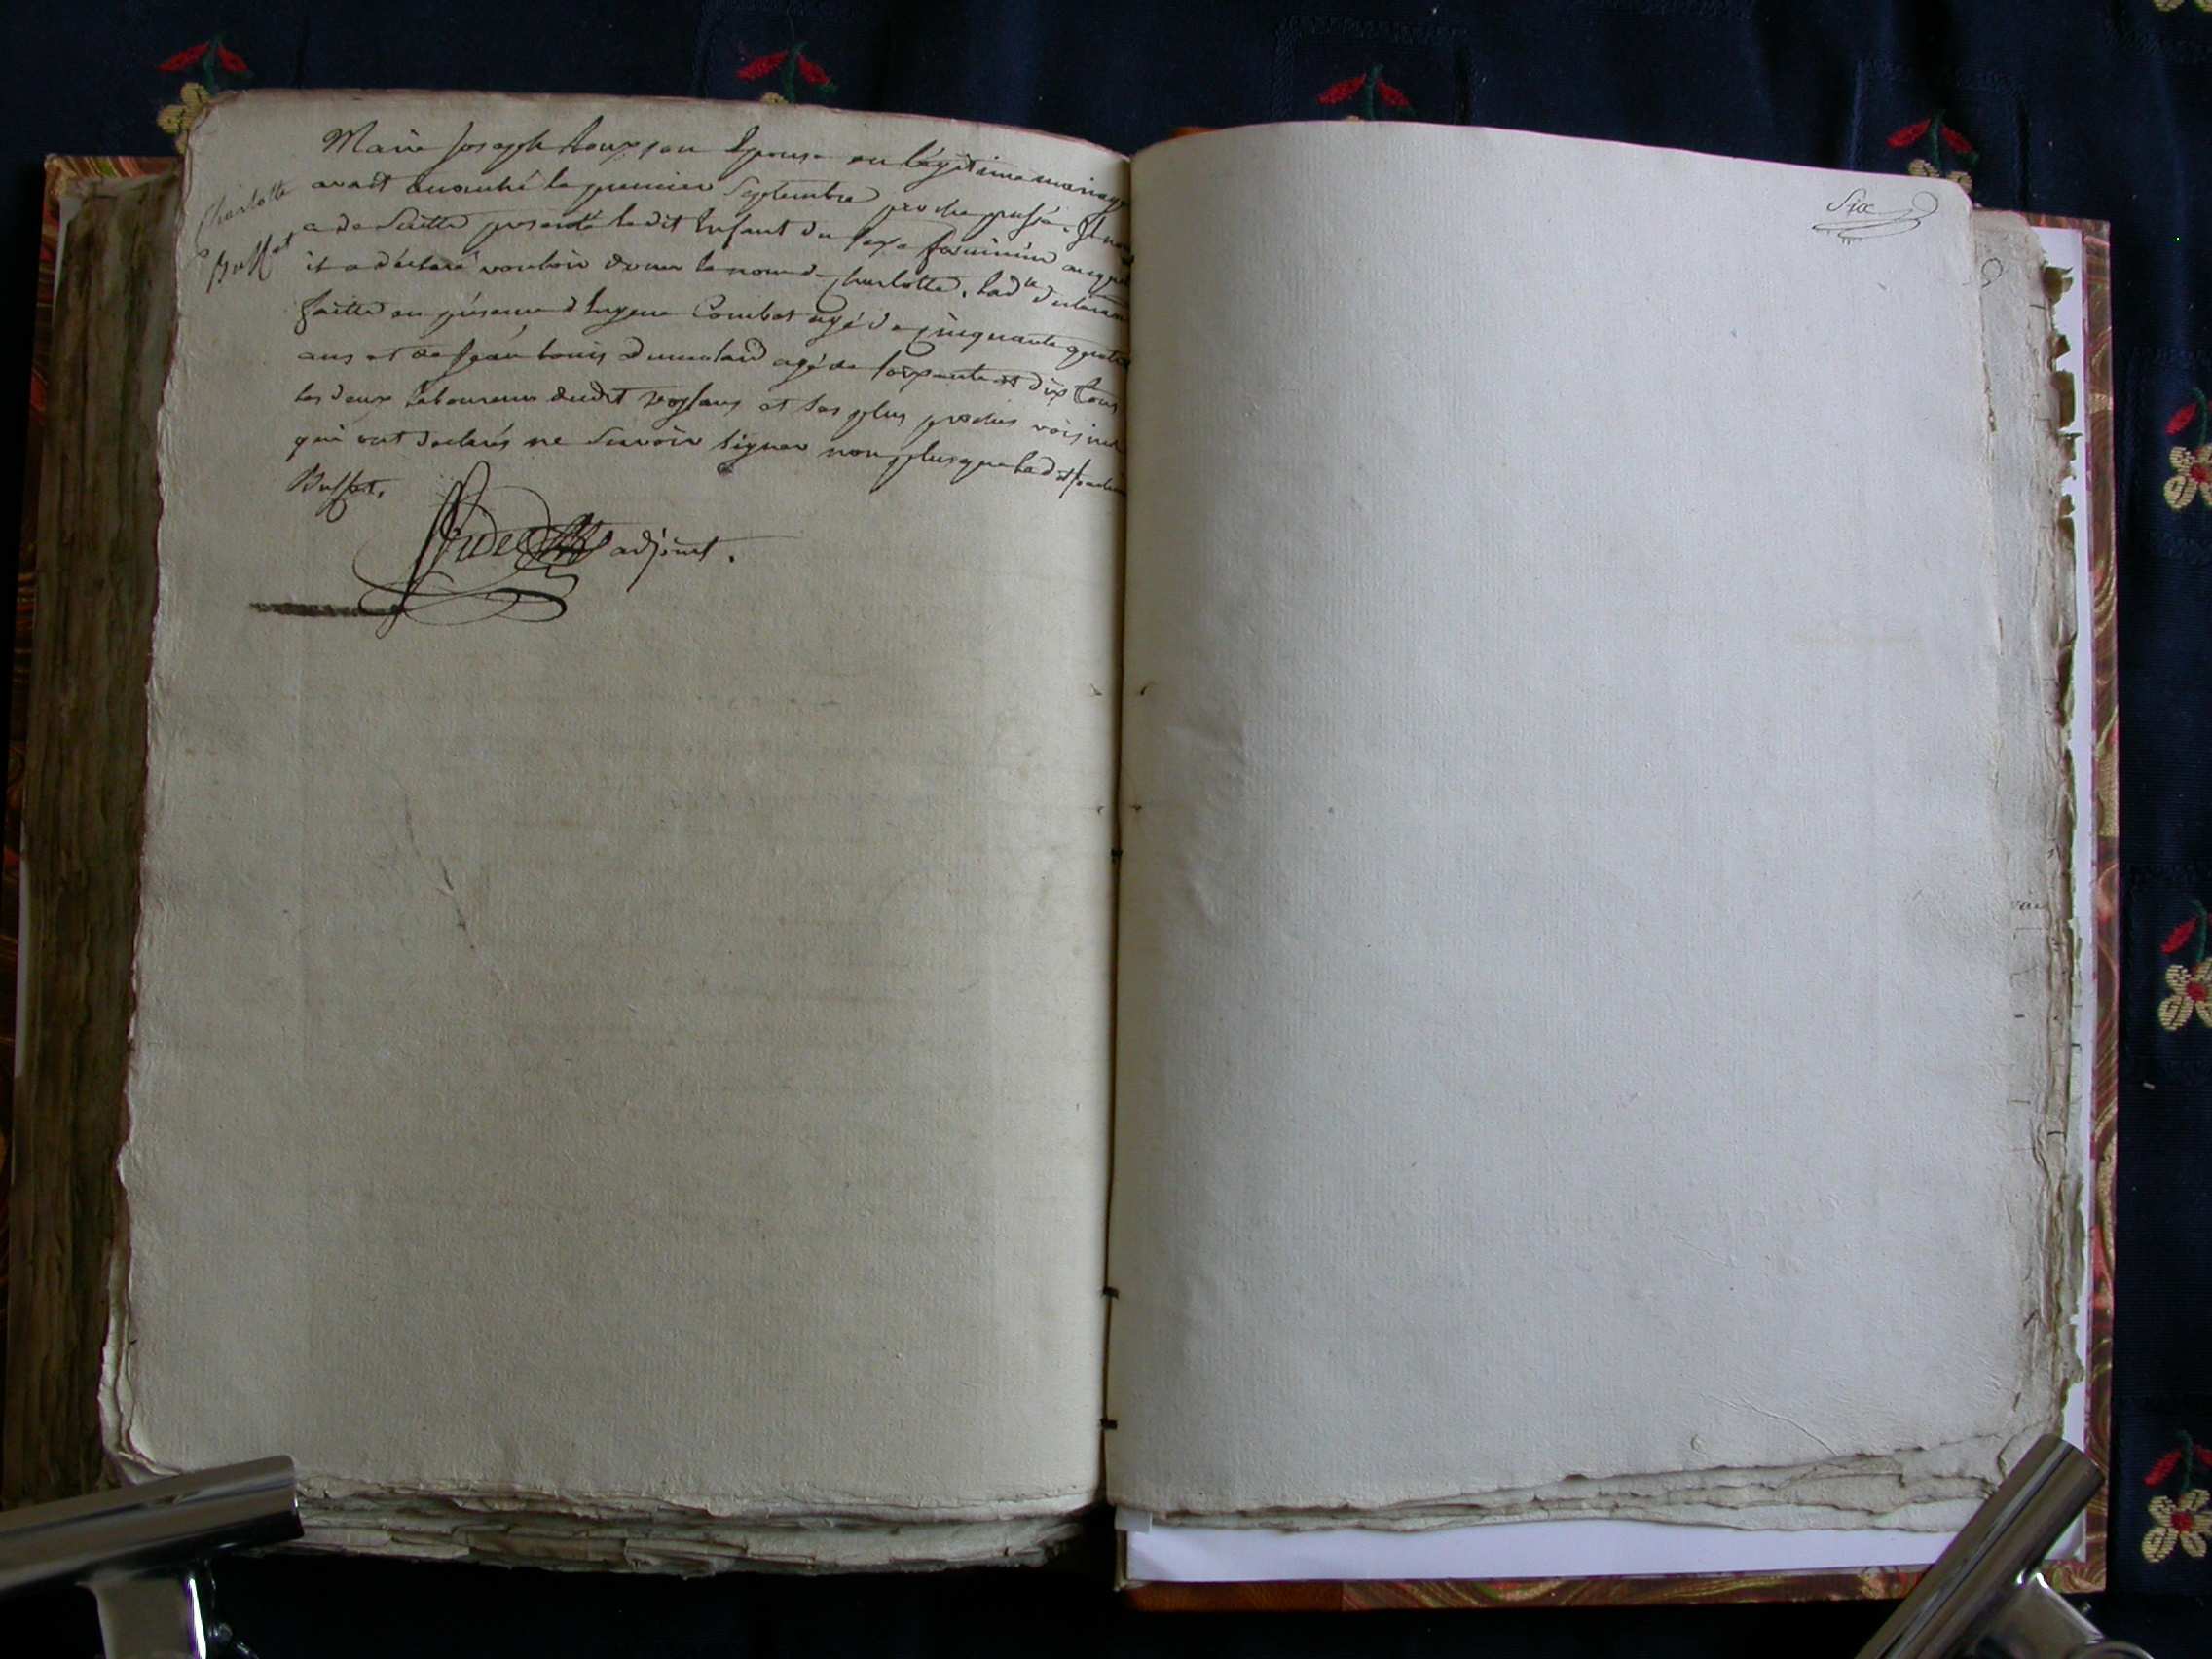 Marie Joseph Roux son Epouse en légitime mariage
avait accouché le premier Septembre proche passé. Il nous
Charlotte
Buffet
a de Suitte presenté le dit Enfant du sexe féminin auquel
il a déclaré vouloir donner le nom de Charlotte, lad.te déclaration
faitte en présence d'Eugene Combet agé de cinquante quatre
ans et de Jean Louis Dumolard agé de soixante et dix tous
les deux laboureurs dudit et les plus proches voisins
qui ont declarés ne Savoir signer non plus que led.t
Buffet.
adjoint.
Six